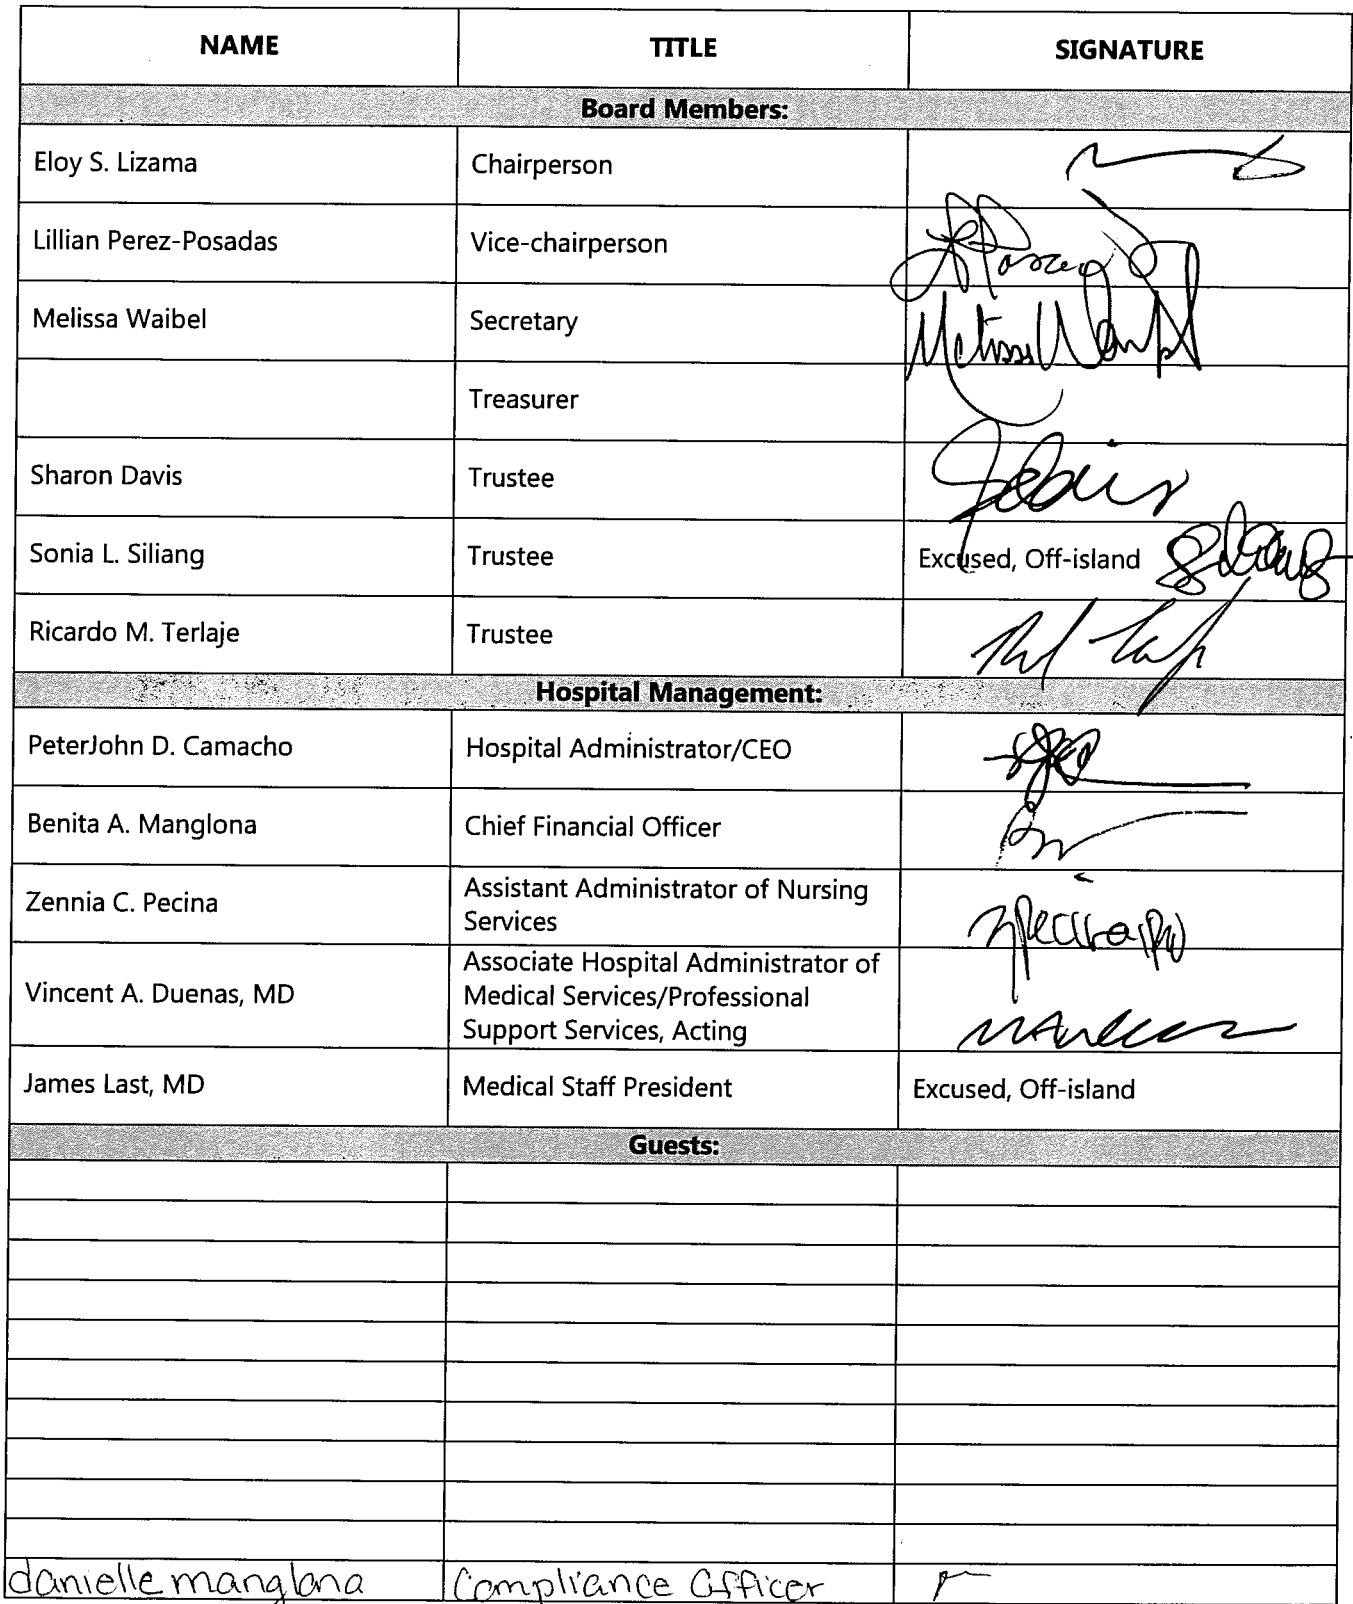 NAME TITLE SIGNATURE
Board Members:
Eloy S. Lizama Chairperson
Lillian Perez-Posadas Vice-chairperson
Melissa Waibel Secretary
Treasurer
Sharon Davis Trustee
Sonia L. Siliang Trustee Excused, Off-island
Ricardo M. Terlaje Trustee
Hospital Management:
PeterJohn D. Camacho Hospital Administrator/CEO
Benita A. Manglona Chief Financial Officer
Zennia C. Pecina Assistant Administrator of Nursing
Services
Vincent A. Duenas, MD Associate Hospital Administrator of
Medical Services/Professional
Support Services, Acting
James Last, MD Medical Staff President Excused, Off-island
Guests:
danielle manglona Compliance Officer